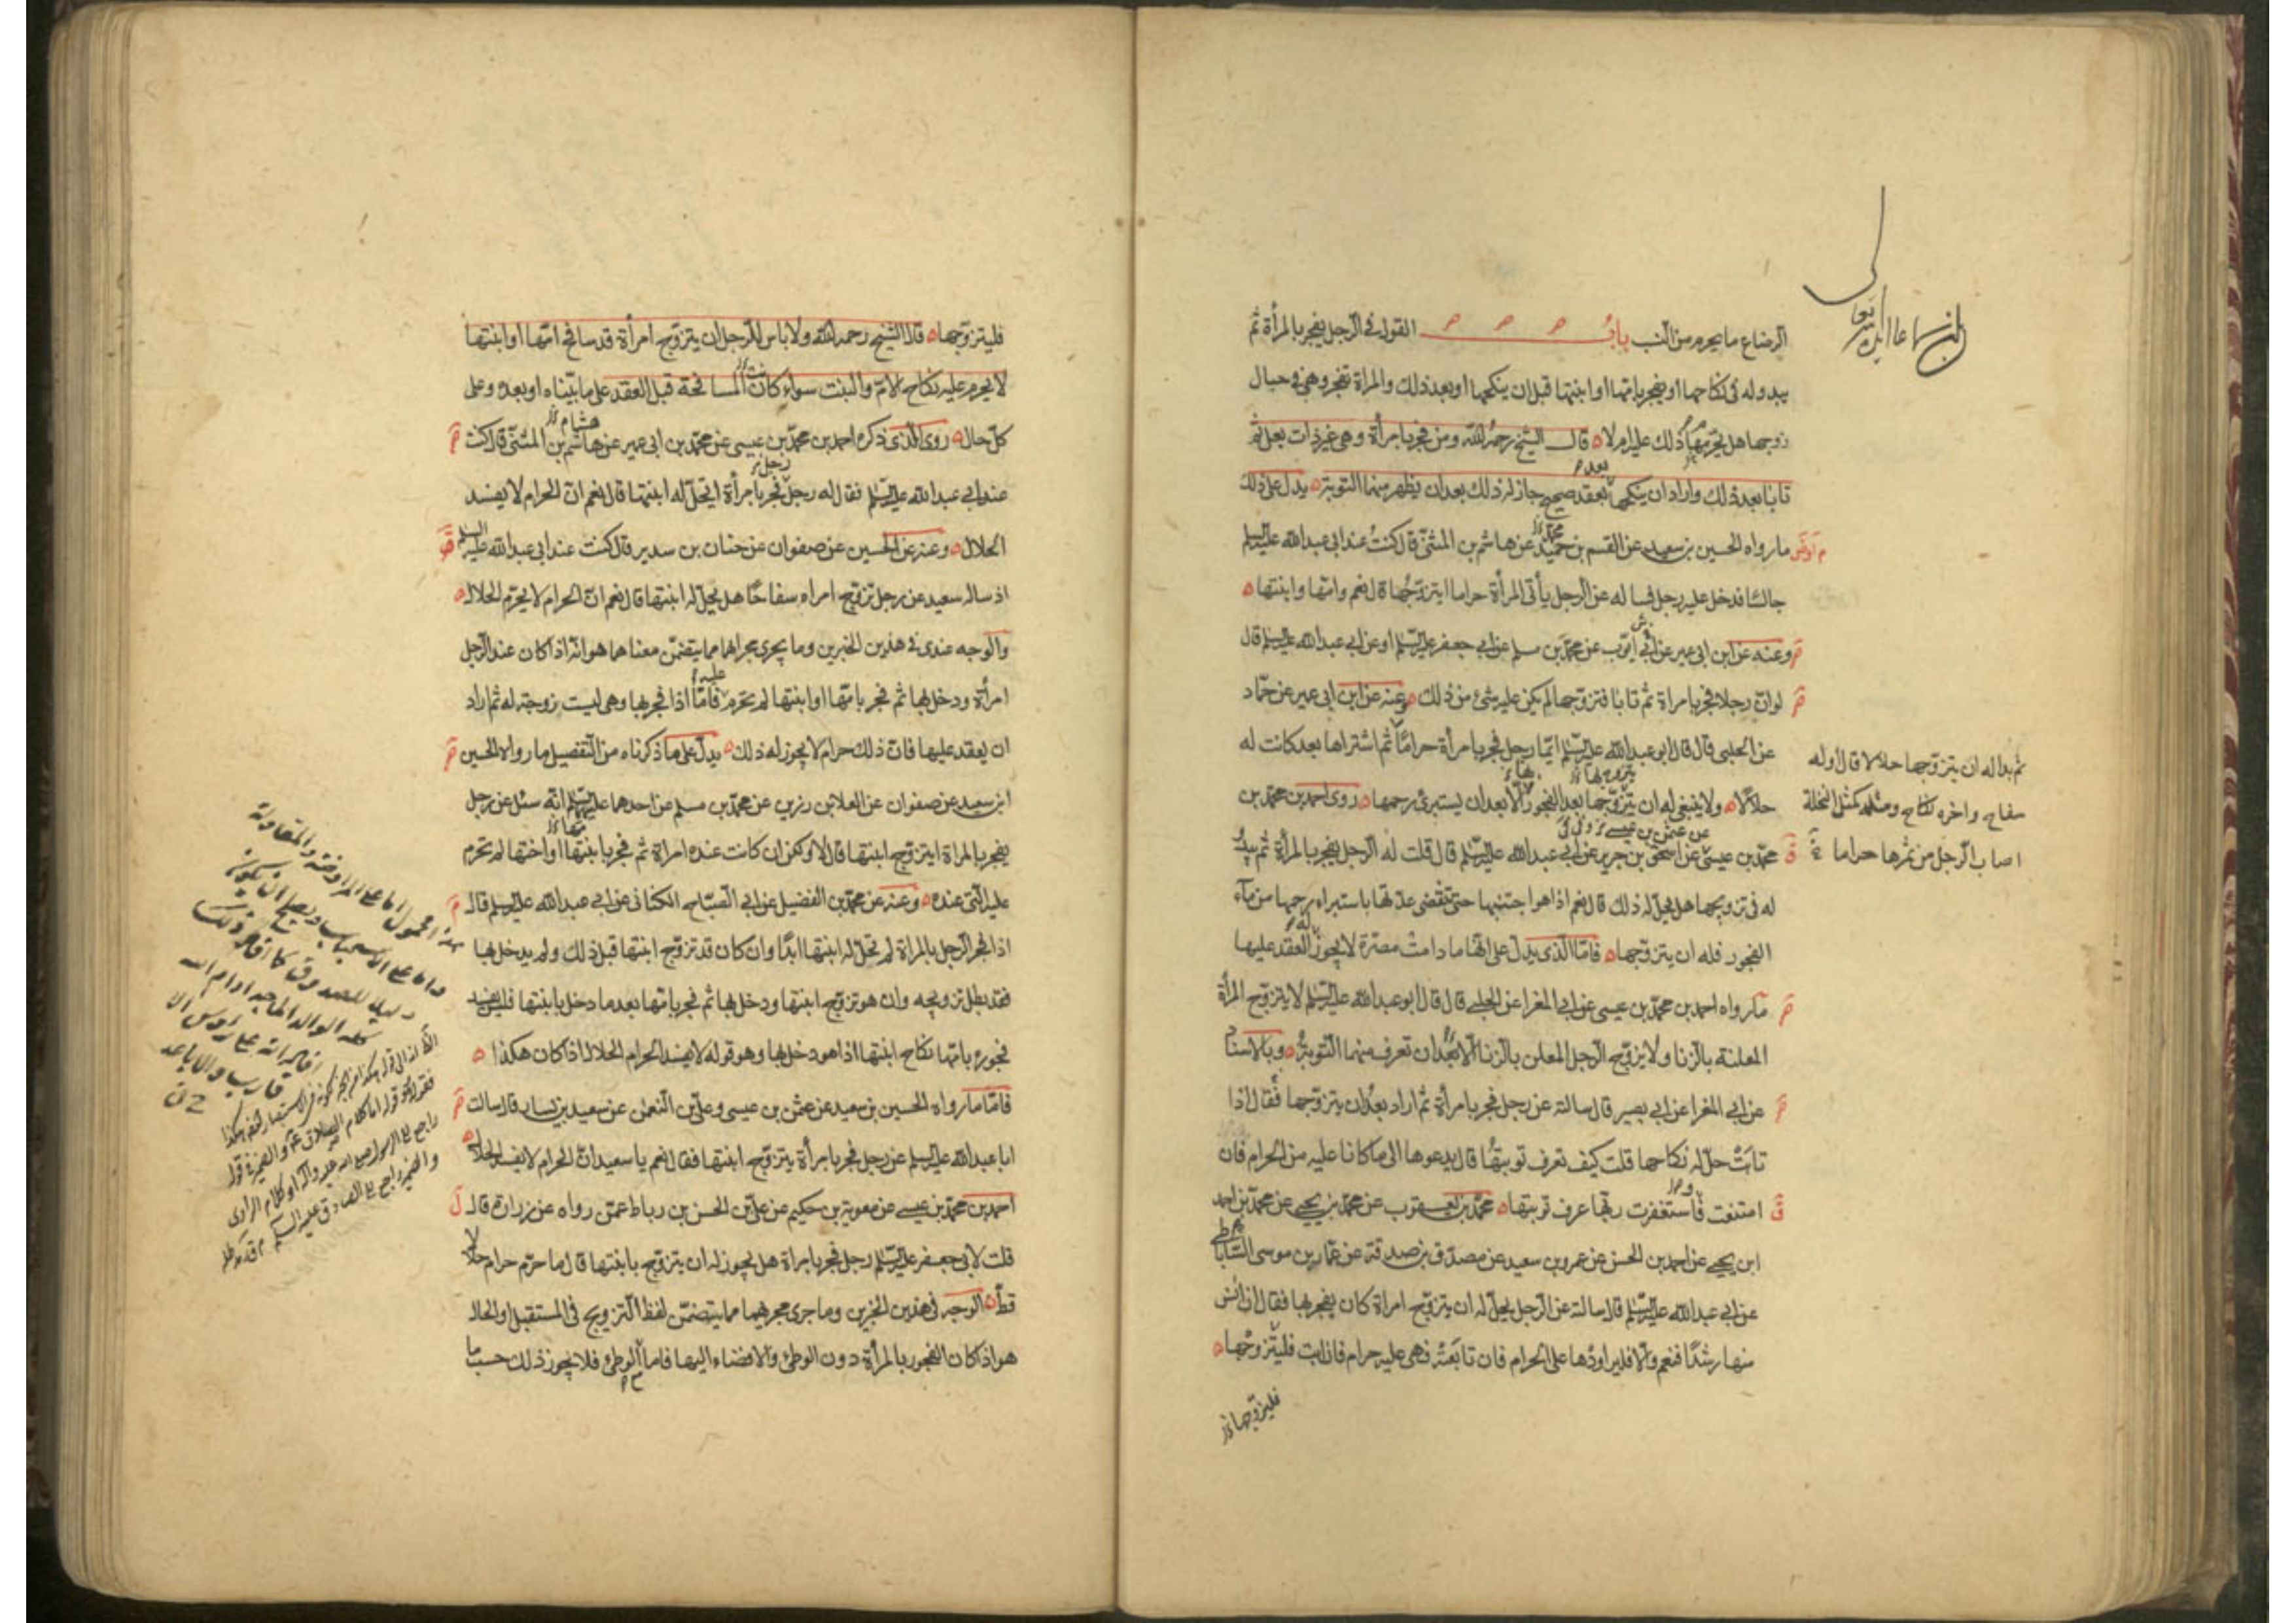 الرضاع ما يحرم من النسب باب القول في الرجل يفجر بالمرأة ثم
يبدو له في نكاحها او يفجر بامها او ابنتها قبل ان ينكحها او بعد ذلك والمراة تفجر وهي في حبال
زوجها هل يحرمها ذلك عليه ام لا ه قال الشيخ رحمه الله ومن فجر بامرأة وهي غير ذات بعل ثم
تابا بعد ذلك واراد ان ينكحها بعقد صحيح جاز له ذلك بعد ان يظهر منها التوبة ه يدل على ذلك
ما رواه الحسين بن سعيد عن القسم بن حميد عن هاشم بن المثنى قال كنت عند ابي عبد الله عليه السلم
جالسا فدخل عليه رجل فساله عن الرجل يأتي المرأة حراما ايتزوجها قال نعم وامها وابنتها ه
وعنه عن ابن ابي عمير عن ابي ايوب عن محمد بن مسلم عن ابي جعفر عليه السلم او عن ابي عبد الله عليه السلم قال
لو ان رجلا فجر بامراة ثم تابا فتزوجها لم يكن عليه شئ من ذلك ه وعنه عن ابن ابي عمير عن حماد
عن الحلبي قال قال ابو عبد الله عليه السلم ايما رجل فجر بامرأة حراما ثم اشتراها بعد كانت له
ثم بدا له ان يتزوجها حلالا قال اوله
سفاح واخره نكاح ومثله كمثل النخلة
اصاب الرجل من ثمرها حراما
حلالا ه ولا ينبغي له ان يتزوجها بعد الفجور الا بعد ان يستبرئ رحمها ه روى احمد بن محمد بن
محمد بن عيسى عن اسحق بن جرير عن ابي عبد الله عليه السلم قال قلت له الرجل يفجر بالمرأة ثم يبدو
له في تزويجها هل يحل له ذلك قال نعم اذا هو اجتنبها حتى تنقضي عدتها باستبراء رحمها من مآء
الفجور فله ان يتزوجها ه فاما الذي يدل على انها ما دامت مصرة لا يجوز العقد عليها
مآ رواه احمد بن محمد بن عيسى عن ابي المغرا عن الحلبي قال قال ابو عبد الله عليه السلم لا يتزوج المرأة
المعلنة بالزنا ولا يزوج الرجل المعلن بالزنا الا بعد ان تعرف منهما التوبة ه وبالاسناد
عن ابي المغرا عن ابي بصير قال سالته عن رجل فجر بامرأة ثم اراد بعد ان يتزوجها فقال اذا
تابت حل له نكاحها قلت كيف تعرف توبتها قال يدعوها الى ما كانا عليه من الحرام فان
امتنعت فاستغفرت ربها عرف توبتها ه محمد بن يعقوب عن محمد بن يحيى عن محمد بن احمد
ابن يحيى عن احمد بن الحسن عن عمرو بن سعيد عن مصدق بن صدقة عن عمار بن موسى الساباطي
عن ابي عبد الله عليه السلم قال سالته عن الرجل يحل له ان يتزوج امراة كان يفجر بها فقال ان انس
منها رشدا فنعم والا فليراودها على الحرام فان تابعته فهي عليه حرام فان ابت فليتزوجها ه
فليتزوجها
فليتزوجها ه قال الشيخ رحمه الله ولا باس للرجل ان يتزوج امرأة قد سافح امها او ابنتها
لا يحرم عليه نكاح الام والبنت سواء كانت المسافحة قبل العقد على ما بيناه او بعده وعلى
كل حال ه روى الذي ذكره احمد بن محمد بن عيسى عن محمد بن ابي عمير عن هاشم بن المثنى قال كنت
عند ابي عبد الله عليه السلم فقال له رجل فجر بامرأة اتحل له ابنتها قال نعم ان الحرام لا يفسد
الحلال ه وعنه عن الحسين عن صفوان عن حنان بن سدير قال كنت عند ابي عبد الله عليه السلم
اذ ساله سعيد عن رجل تزوج امراه سفاحا هل يحل له ابنتها قال نعم ان الحرام لا يحرم الحلال ه
والوجه عندي في هذين الخبرين وما يجري مجراهما مما يتضمن معناهما هو انه اذا كان عند الرجل
امرأة ودخل بها ثم فجر بامها او ابنتها لم تحرم عليه فاما اذا فجر بها وهي ليست زوجته له ثم اراد
ان يعقد عليها فان ذلك حرام لا يجوز له ذلك ه يدل على ما ذكرناه من التفصيل ما رواه الحسين
ابن سعيد عن صفوان عن العلا بن رزين عن محمد بن مسلم عن احدهما عليهما السلم انه سئل عن رجل
يفجر بالمراة ايتزوج ابنتها قال لا ولكن ان كانت عنده امراة ثم فجر بابنتها او اختها لم تحرم
عليه التي عنده ه وعنه عن محمد بن الفضيل عن ابي الصباح الكناني عن ابي عبد الله عليه السلم قال
اذا فجر الرجل بالمراة لم تحل له ابنتها ابدا وان كان قد تزوج ابنتها قبل ذلك ولم يدخل بها
فقد بطل تزويجه وان هو تزوج ابنتها ودخل بها ثم فجر بامها بعد ما دخل بابنتها فليس يفسد
فجوره بامها نكاح ابنتها اذا هو دخل بها وهو قوله لا يفسد الحرام الحلال اذا كان هكذا ه
فاما ما رواه الحسين بن سعيد عن عثمن بن عيسى وعلي بن النعمن عن سعيد بن يسار قال سالت
ابا عبد الله عليه السلم عن رجل فجر بامرأة يتزوج ابنتها فقال نعم يا سعيد ان الحرام لا يفسد الحلال ه
احمد بن محمد بن عيسى عن معوية بن حكيم عن علي بن الحسن بن رباط عمن رواه عن زرارة قال
قلت لابي جعفر عليه السلم رجل فجر بامراة هل يجوز له ان يتزوج بابنتها قال ما حرم حرام حلالا
قط ه الوجه في هذين الخبرين وما جرى مجريهما مما يتضمن لفظ التزويج في المستقبل او الحال
هو اذ كان الفجور بالمرأة دون الوطئ والافضاء اليها فاما الوطئ فلا يجوز ذلك حسب ما